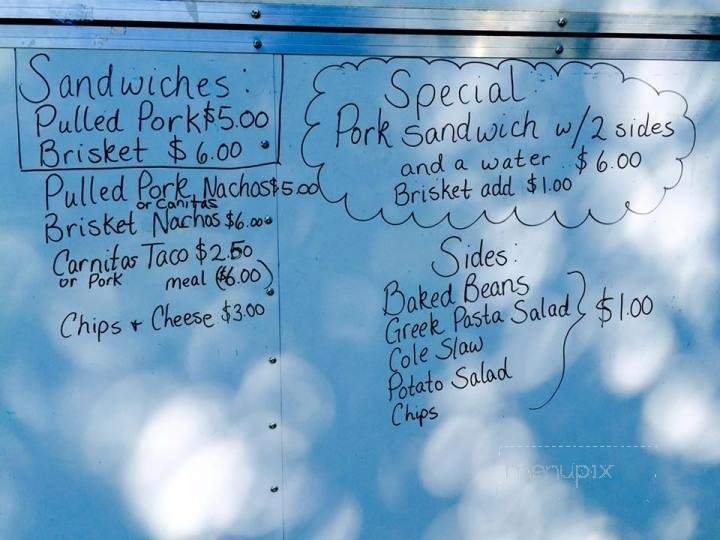 Sandwiches:
Pulled Pork $5.00
Brisket $6.00
Pulled Pork Nachos $5.00
or Canitas
Brisket Nachos $6.00
Carnitas Taco $2.50
or Pork meal ($6.00)
Chips + Cheese $3.00
Special
Pork Sandwich w/2 sides
and a water $6.00
Brisket add $1.00
Sides:
Baked Beans
Greek Pasta Salad } $1.00
Cole Slaw
Potato Salad
Chips
menupix